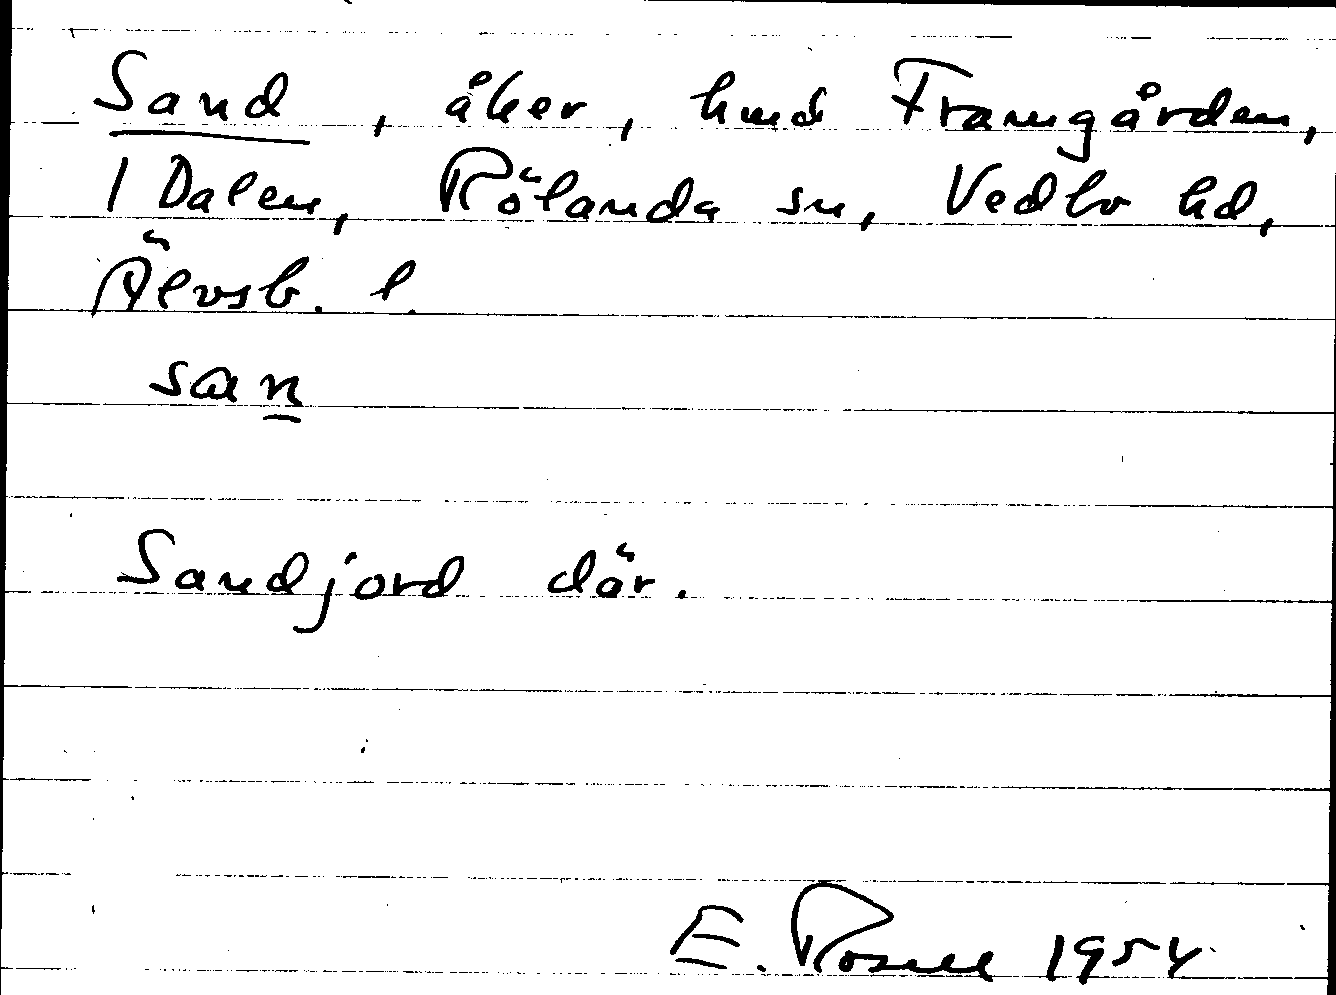 Sand, åker, hmd Framgården,
1 Dalen, Rölanda sn, Vedbo hd,
Älvsb. l.
san
Sandjord där.
E. Rosell 1954